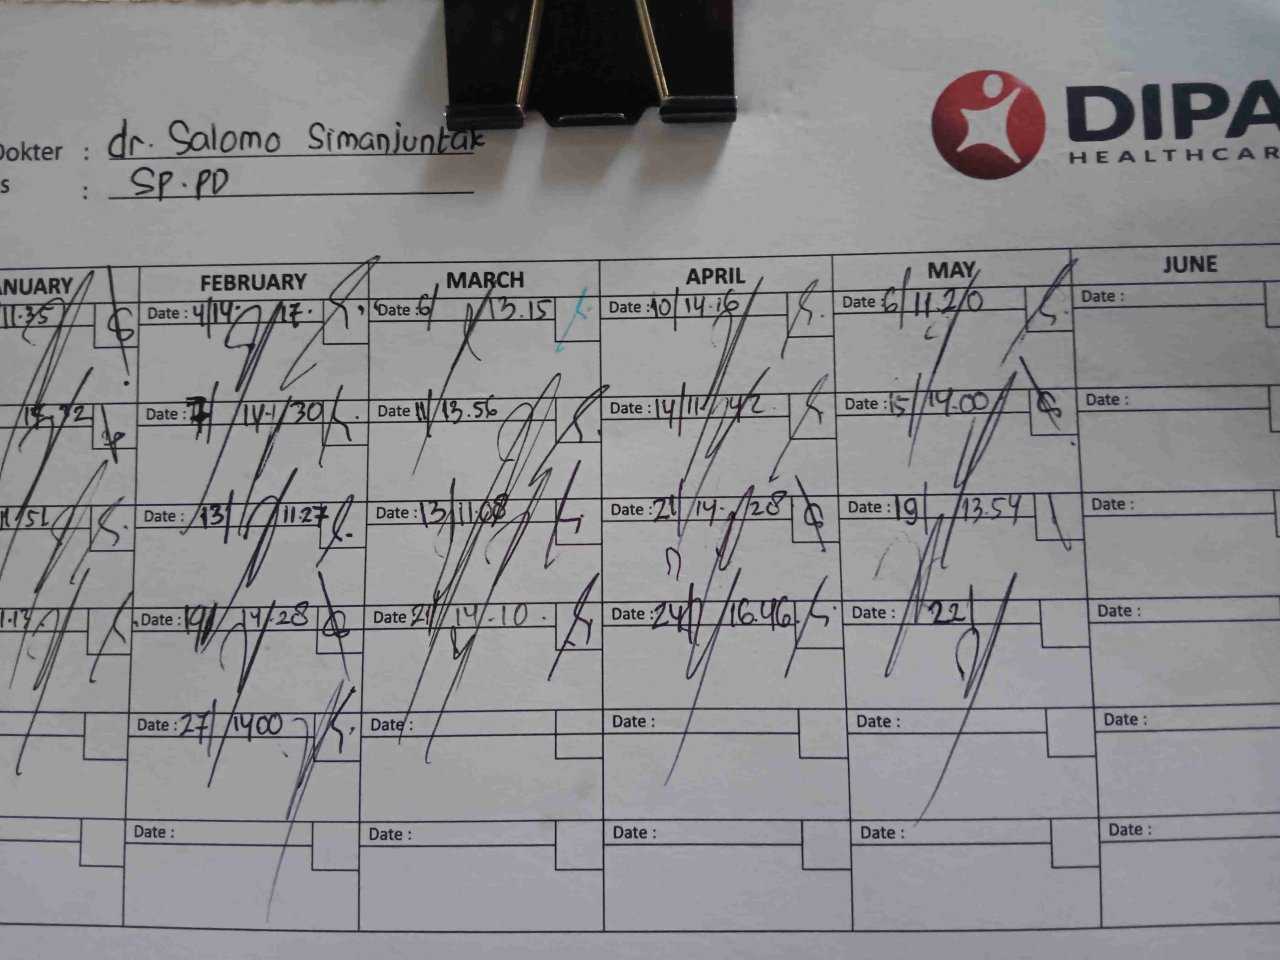 Dokter : dr. Salomo Simanjuntak
s : SP.PD
DIPA
HEALTHCAR
ANUARY FEBRUARY MARCH APRIL MAY JUNE
11.35 Date : 4/14. 17. Date : 6/ 13.15 Date : 10/14.16 Date : 6/11.20 Date :
Date : 7/ 14.30 Date : 11/13.56 Date : 14/11.42 Date : 15/14.00 Date :
11.51 Date : 13/ 11.27 Date : 13/11.08 Date : 21/14.28 Date : 19/ 13.54 Date :
1.13 Date : 19/ 14.28 Date : 21/ 14.10. Date : 24/ 16.46 Date : 22/ Date :
Date : 27/1400 Date : Date : Date : Date :
Date : Date : Date : Date : Date :